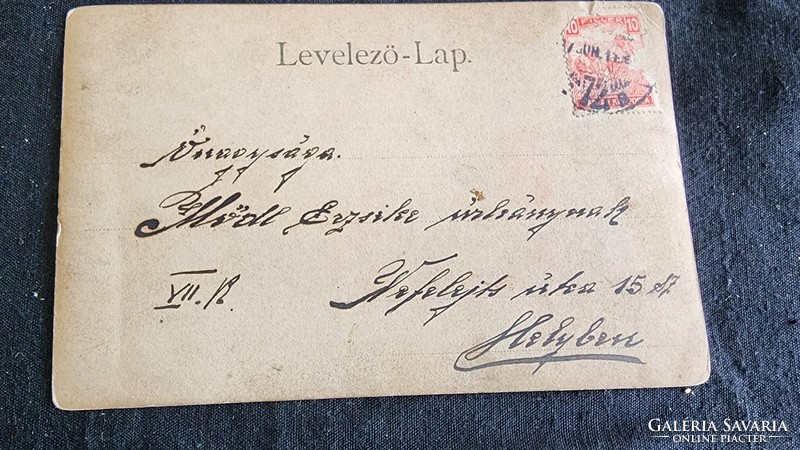 Levelező-Lap.
10 FILLÉR 10
72
Őnagysága.
Mödl Erzsike úrhánynak
VII. K.
Nefelejts útca 15 sz
Helyben
GALÉRIA SAVARIA
ONLINE PIACTÉR